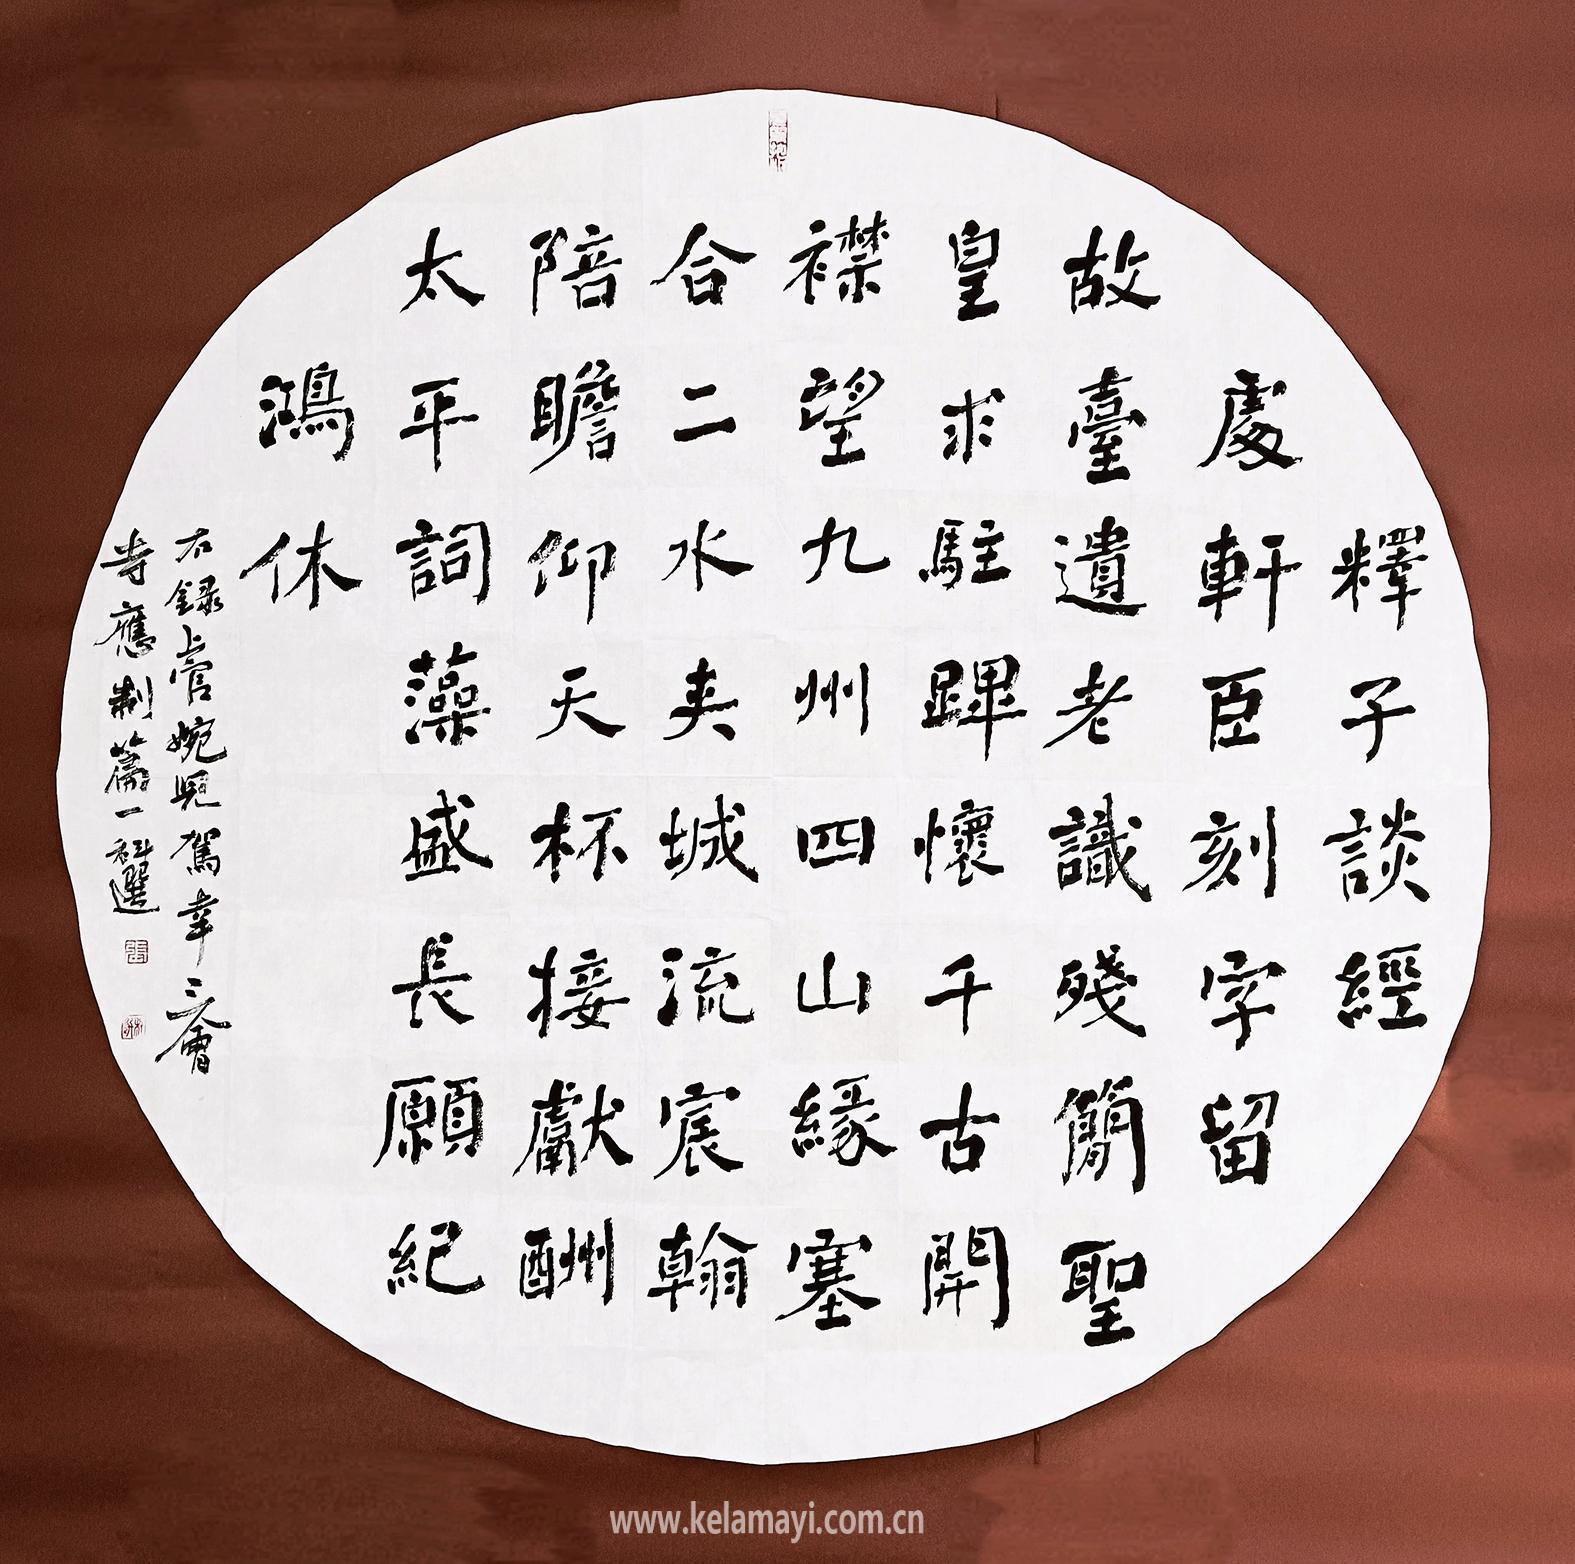 釋子談經
處軒臣刻字留
故臺遺老識殘簡聖
皇求駐蹕懷千古開
襟望九州四山緣塞
合二水夾城流宸翰
陪瞻仰天杯接獻酬
太平詞藻盛長願紀
鴻休
右録上官婉兒駕幸三會
寺應制篇一
www.kelamayi.com.cn